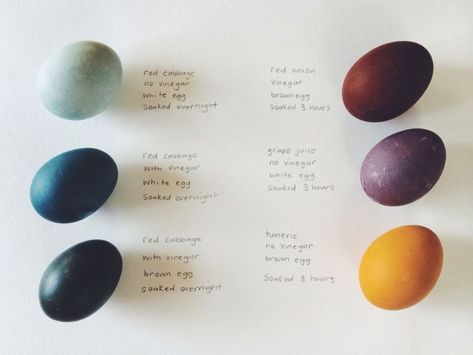 red cabbage
no vinegar
white egg
soaked overnight
red cabbage
with vinegar
white egg
soaked overnight
red cabbage
with vinegar
brown egg
soaked overnight
red onion
vinegar
brown egg
soaked 3 hours
grape juice
no vinegar
white egg
soaked 3 hours
tumeric
no vinegar
brown egg
soaked 3 hours